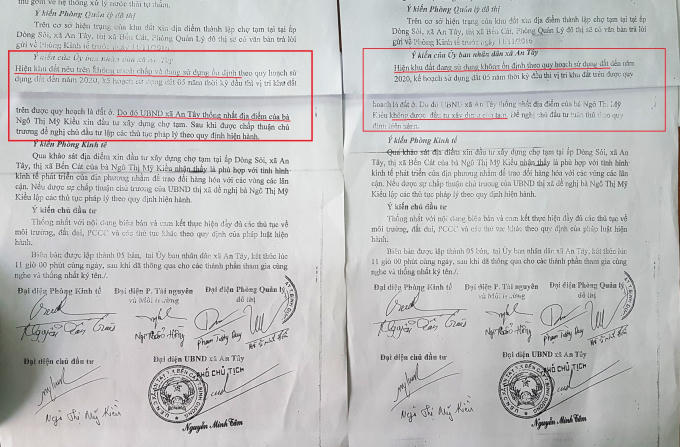 thu gom về hệ thống xử lý nước thải tự thấm.
Ý kiến Phòng Quản lý đô thị
Trên cơ sở hiện trạng của khu đất xin địa điểm thành lập chợ tạm tại ấp
Dòng Sỏi, xã An Tây, thị xã Bến Cát, Phòng Quản Lý đô thị sẽ có văn bản trả lời
gửi về Phòng Kinh tế trước ngày 11/11/2016.
Ý kiến của Ủy ban nhân dân xã An Tây
Hiện khu đất nêu trên không tranh chấp và đang sử dụng ổn định theo quy hoạch sử
dụng đất đến năm 2020, kế hoạch sử dụng đất 05 năm thời kỳ đầu thì vị trí khu đất
trên được quy hoạch là đất ở. Do đó UBND xã An Tây thống nhất địa điểm của bà
Ngô Thị Mỹ Kiều xin đầu tư xây dựng chợ tạm. Sau khi được chấp thuận chủ
trương đề nghị chủ đầu tư lập các thủ tục pháp lý theo quy định hiện hành.
Ý kiến Phòng Kinh tế
Qua khảo sát địa điểm xin đầu tư xây dựng chợ tạm tại ấp Dòng Sỏi, xã An
Tây, thị xã Bến Cát của bà Ngô Thị Mỹ Kiều nhận thấy là phù hợp với tình hình
kinh tế phát triển của địa phương nhằm để trao đổi hàng hóa với các vùng các lân
cận. Nếu được sự chấp thuận chủ trương của UBND thị xã đề nghị bà Ngô Thị Mỹ
Kiều lập các thủ tục pháp lý theo quy định hiện hành.
Ý kiến chủ đầu tư
Thống nhất với nội dung biên bản và cam kết thực hiện đầy đủ các thủ tục về
môi trường, đất đai, PCCC và các thủ tục khác theo quy định của pháp luật hiện
hành.
Biên bản được lập thành 05 bản, tại Ủy ban nhân dân xã An Tây, kết thúc lúc
11 giờ 00 phút cùng ngày, sau khi đã thông qua cho các thành phần tham gia cùng
nghe và thống nhất ký tên./.
Đại diện Phòng Kinh tế Đại diện P. Tài nguyên Đại diện Phòng Quản lý
và Môi trường đô thị
Phạm Tường Duy
Đại diện chủ đầu tư Đại diện UBND xã An Tây
PHÓ CHỦ TỊCH
Ngô Thị Mỹ Kiều
Nguyễn Minh Tâm
Ý kiến Phòng Quản lý đô thị
Trên cơ sở hiện trạng của khu đất xin địa điểm thành lập chợ tạm tại ấp
Dòng Sỏi, xã An Tây, thị xã Bến Cát, Phòng Quản Lý đô thị sẽ có văn bản trả lời
gửi về Phòng Kinh tế trước ngày 11/11/2016.
Ý kiến của Ủy ban nhân dân xã An Tây
Hiện khu đất đang sử dụng không ổn định theo quy hoạch sử dụng đất đến năm
2020, kế hoạch sử dụng đất 05 năm thời kỳ đầu thì vị trí khu đất trên được quy
hoạch là đất ở. Do đó UBND xã An Tây thống nhất địa điểm của bà Ngô Thị Mỹ
Kiều không được đầu tư xây dựng chợ tạm. Đề nghị chủ đầu tư tuân thủ theo quy
định hiện hành.
Ý kiến Phòng Kinh tế
Qua khảo sát địa điểm xin đầu tư xây dựng chợ tạm tại ấp Dòng Sỏi, xã An
Tây, thị xã Bến Cát của bà Ngô Thị Mỹ Kiều nhận thấy là phù hợp với tình hình
kinh tế phát triển của địa phương nhằm để trao đổi hàng hóa với các vùng các lân
cận. Nếu được sự chấp thuận chủ trương của UBND thị xã đề nghị bà Ngô Thị Mỹ
Kiều lập các thủ tục pháp lý theo quy định hiện hành.
Ý kiến chủ đầu tư
Thống nhất với nội dung biên bản và cam kết thực hiện đầy đủ các thủ tục về
môi trường, đất đai, PCCC và các thủ tục khác theo quy định của pháp luật hiện
hành.
Biên bản được lập thành 05 bản, tại Ủy ban nhân dân xã An Tây, kết thúc lúc
11 giờ 00 phút cùng ngày, sau khi đã thông qua cho các thành phần tham gia cùng
nghe và thống nhất ký tên./.
Đại diện Phòng Kinh tế Đại diện P. Tài nguyên Đại diện Phòng Quản lý
và Môi trường đô thị
Phạm Tường Duy
Đại diện chủ đầu tư Đại diện UBND xã An Tây
PHÓ CHỦ TỊCH
Ngô Thị Mỹ Kiều
Nguyễn Minh Tâm